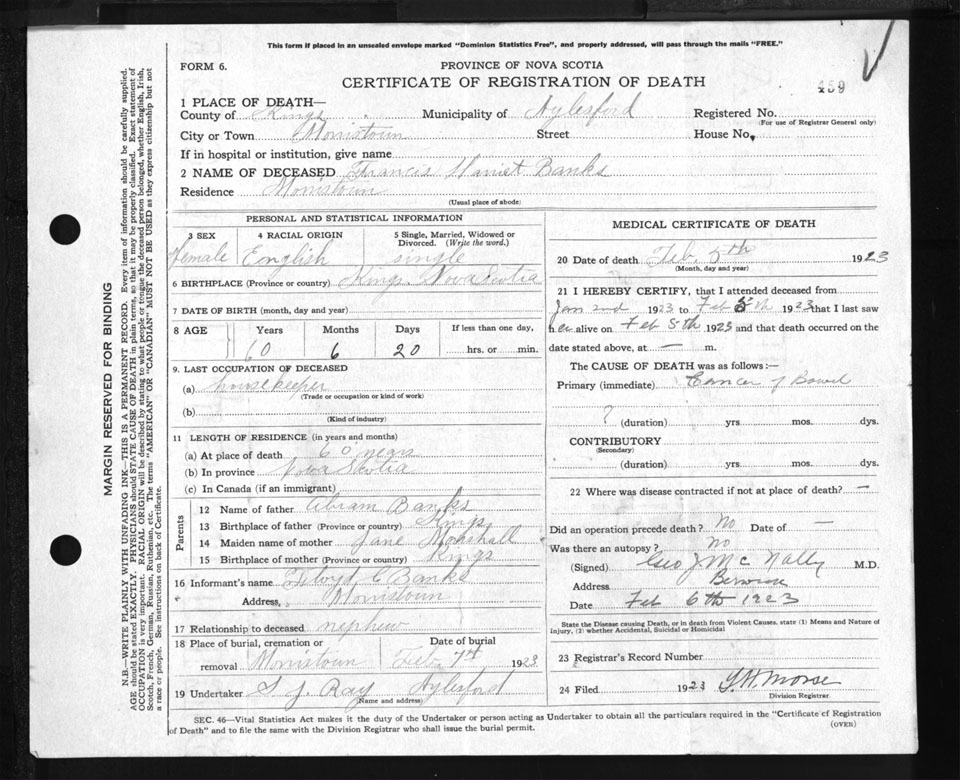 This form if placed in an unsealed envelope marked "Dominion Statistics Free", and properly addressed, will pass through the mails "FREE."
FORM 6.
PROVINCE OF NOVA SCOTIA
CERTIFICATE OF REGISTRATION OF DEATH
459
1 PLACE OF DEATH—
County of Kings Municipality of Aylesford Registered No.
(For use of Registrar General only)
City or Town Morristown Street House No.
If in hospital or institution, give name
2 NAME OF DECEASED Francis Harriet Banks
Residence Morristown
(Usual place of abode)
PERSONAL AND STATISTICAL INFORMATION
3 SEX 4 RACIAL ORIGIN 5 Single, Married, Widowed or Divorced. (Write the word.)
Female English single
6 BIRTHPLACE (Province or country) Kings Nova Scotia
7 DATE OF BIRTH (month, day and year)
8 AGE Years Months Days If less than one day,
60 6 20 hrs. or min.
9. LAST OCCUPATION OF DECEASED
(a) housekeeper
(Trade or occupation or kind of work)
(b)
(Kind of industry)
11 LENGTH OF RESIDENCE (in years and months)
(a) At place of death 60 years
(b) In province Nova Scotia
(c) In Canada (if an immigrant)
Parents
12 Name of father Abram Banks
13 Birthplace of father (Province or country) Kings
14 Maiden name of mother Jane Marshall
15 Birthplace of mother (Province or country) Kings
16 Informant's name Floyd E Banks
Address, Morristown
17 Relationship to deceased nephew
18 Place of burial, cremation or Date of burial
removal Morristown Feb 7th 1923
19 Undertaker S J. Ray Aylesford
(Name and address)
MEDICAL CERTIFICATE OF DEATH
20 Date of death Feb. 5th 1923
(Month, day and year)
21 I HEREBY CERTIFY, that I attended deceased from
Jan 2nd 1923 to Feb 5th 1923 that I last saw
her alive on Feb 5th 1923 and that death occurred on the
date stated above, at — m.
The CAUSE OF DEATH was as follows:—
Primary (immediate) Cancer of Bowel
? (duration) yrs mos. dys.
CONTRIBUTORY
(Secondary)
(duration) yrs. mos. dys.
22 Where was disease contracted if not at place of death? —
Did an operation precede death? No Date of —
Was there an autopsy? No
(Signed) Geo J. McNally M.D.
Address Berwick
Date Feb 6th 1923
State the Disease causing Death, or in death from Violent Causes. state (1) Means and Nature of
Injury, (2) whether Accidental, Suicidal or Homicidal
23 Registrar's Record Number
24 Filed 1923 Morse
Division Registrar
SEC. 46—Vital Statistics Act makes it the duty of the Undertaker or person acting as Undertaker to obtain all the particulars required in the "Certificate of Registration
of Death" and to file the same with the Division Registrar who shall issue the burial permit.
(OVER)
MARGIN RESERVED FOR BINDING
N.B.—WRITE PLAINLY WITH UNFADING INK—THIS IS A PERMANENT RECORD. Every item of information should be carefully supplied.
AGE should be stated EXACTLY. PHYSICIANS should STATE CAUSE OF DEATH in plain terms, so that it may be properly classified. Exact statement of
OCCUPATION is very important. RACIAL ORIGIN will be described by stating to what people or tongue the deceased person belonged, whether English, Irish,
Scotch, French, German, Russian, Ruthenian, etc. The terms "AMERICAN" OR "CANADIAN" MUST NOT BE USED as they express citizenship but not
a race or people. See instructions on back of Certificate.